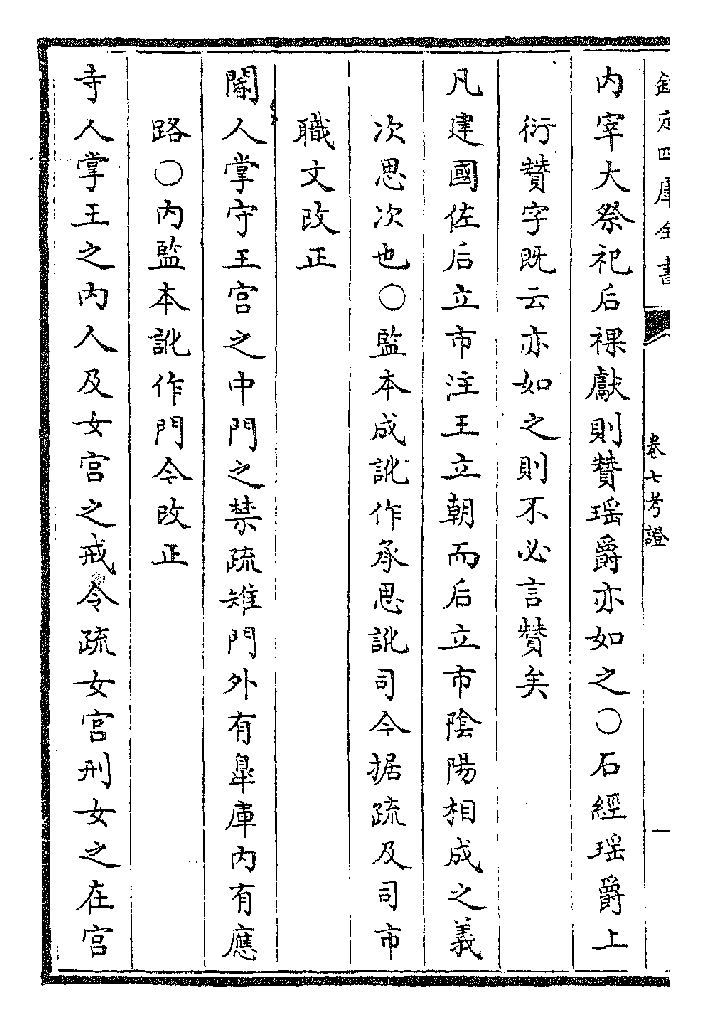 欽定四庫全書
卷七考證
一
內宰大祭祀后祼獻則贊瑶爵亦如之○石經瑶爵上
衍贊字既云亦如之則不必言贊矣
凡建國佐后立市注王立朝而后立市陰陽相成之義
次思次也○監本成訛作承思訛司今据疏及司市
職文改正
閽人掌守王宮之中門之禁疏雉門外有臯庫內有應
路○內監本訛作門今改正
寺人掌王之內人及女宮之戒令疏女宮刑女之在宮